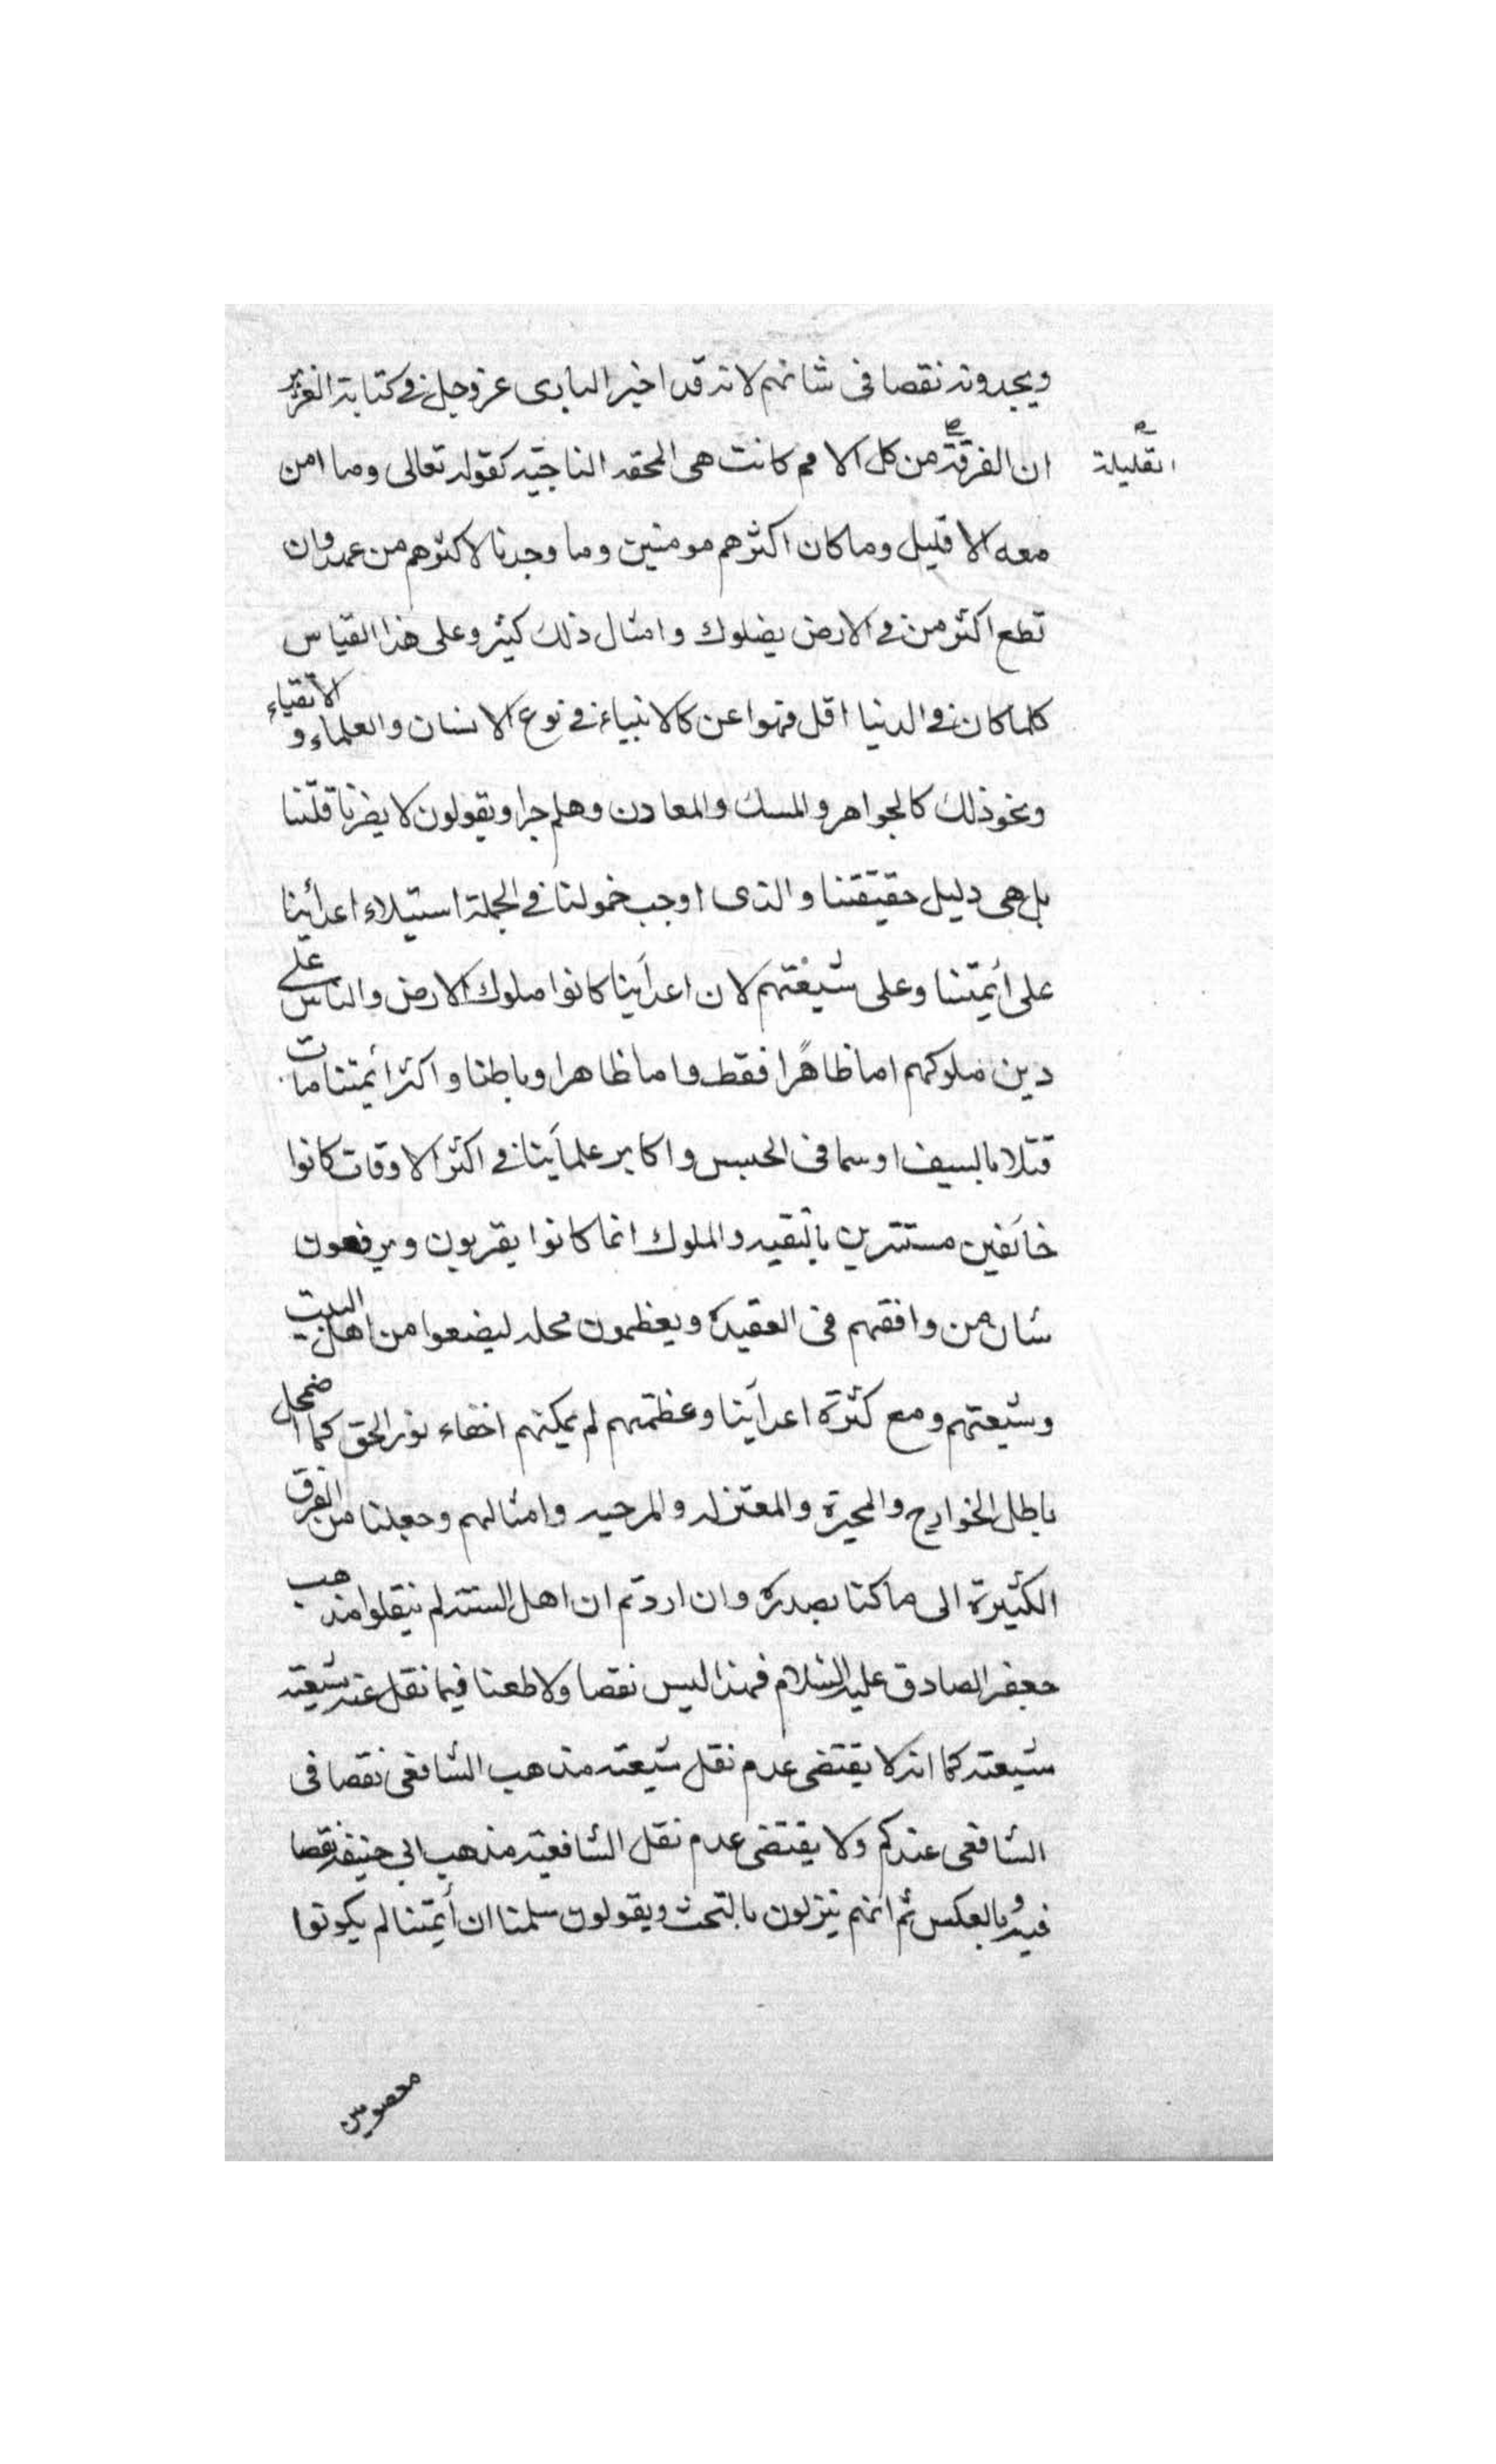 ويجدونه نقصا فى شانهم لانه قد اخبر البارى عز وجل فى كتابة العزيز
ان الفرقة من كل الامم كانت هى المحقه الناجيّه كقوله تعالى وما امن
القليلة
معه الا قليل وما كان اكثرهم مومنين وما وجدنا لاكثرهم من عهد وان
تطع اكثر من فى الارض يضلوك وامثال ذلك كثير وعلى هذا القياس
كلما كان فى الدنيا اقل فهوا عن كالانبياء فى نوع الانسان والعلماء و الاتقياء
ونحو ذلك كالجواهر والمسك والمعادن وهلم جرا ويقولون لا يضرنا قلّتنا
بل هى دليل حقيقتنا والذى اوجب خمولنا فى الجملة استيلاء اعدائنا
على ائيمّتنا وعلى شيعتهم لان اعدآينا كانوا ملوك الارض والناس على
دين ملوكهم اما ظاهرًا فقط واما ظاهرا وباطنا واكثر ائمتنا مات
قتلا بالسيف او سما فى الحبس واكابر علمآينا فى اكثر الاوقات كانوا
خآئفين مستترين بالتقيه والملوك انما كانوا يقربون ويرفعون
شان من وافقهم فى العقيدة ويعظمون محله ليضعوا من اهل البيت
وشيعتهم ومع كثرة اعدآينا وعظمتهم لم يمكنهم اخفاء نور الحق كما اضمحل
باطل الخوارج والمجبرة والمعتزله والمرجيه وامثالهم وجعلنا من الفرق
الكثيرة الى ما كنا بصدده وان اردتم ان اهل السنّه لم ينقلوا مذهب
جعفر الصادق عليه السّلام فهذا ليس نقصا ولا طعنا فيما نقل عنه شيعته
شيعته كما انه لا يقتضى عدم نقل شيعته مذهب الشافعى نقصا فى
الشافعى عندكم ولا يقتضى عدم نقل الشافعيّه مذهب ابى حنيفه نقصا
فيه وبالعكس ثم انهم ينزلون بالتحث ويقولون سلمنا ان أيمّتنا لم يكونوا